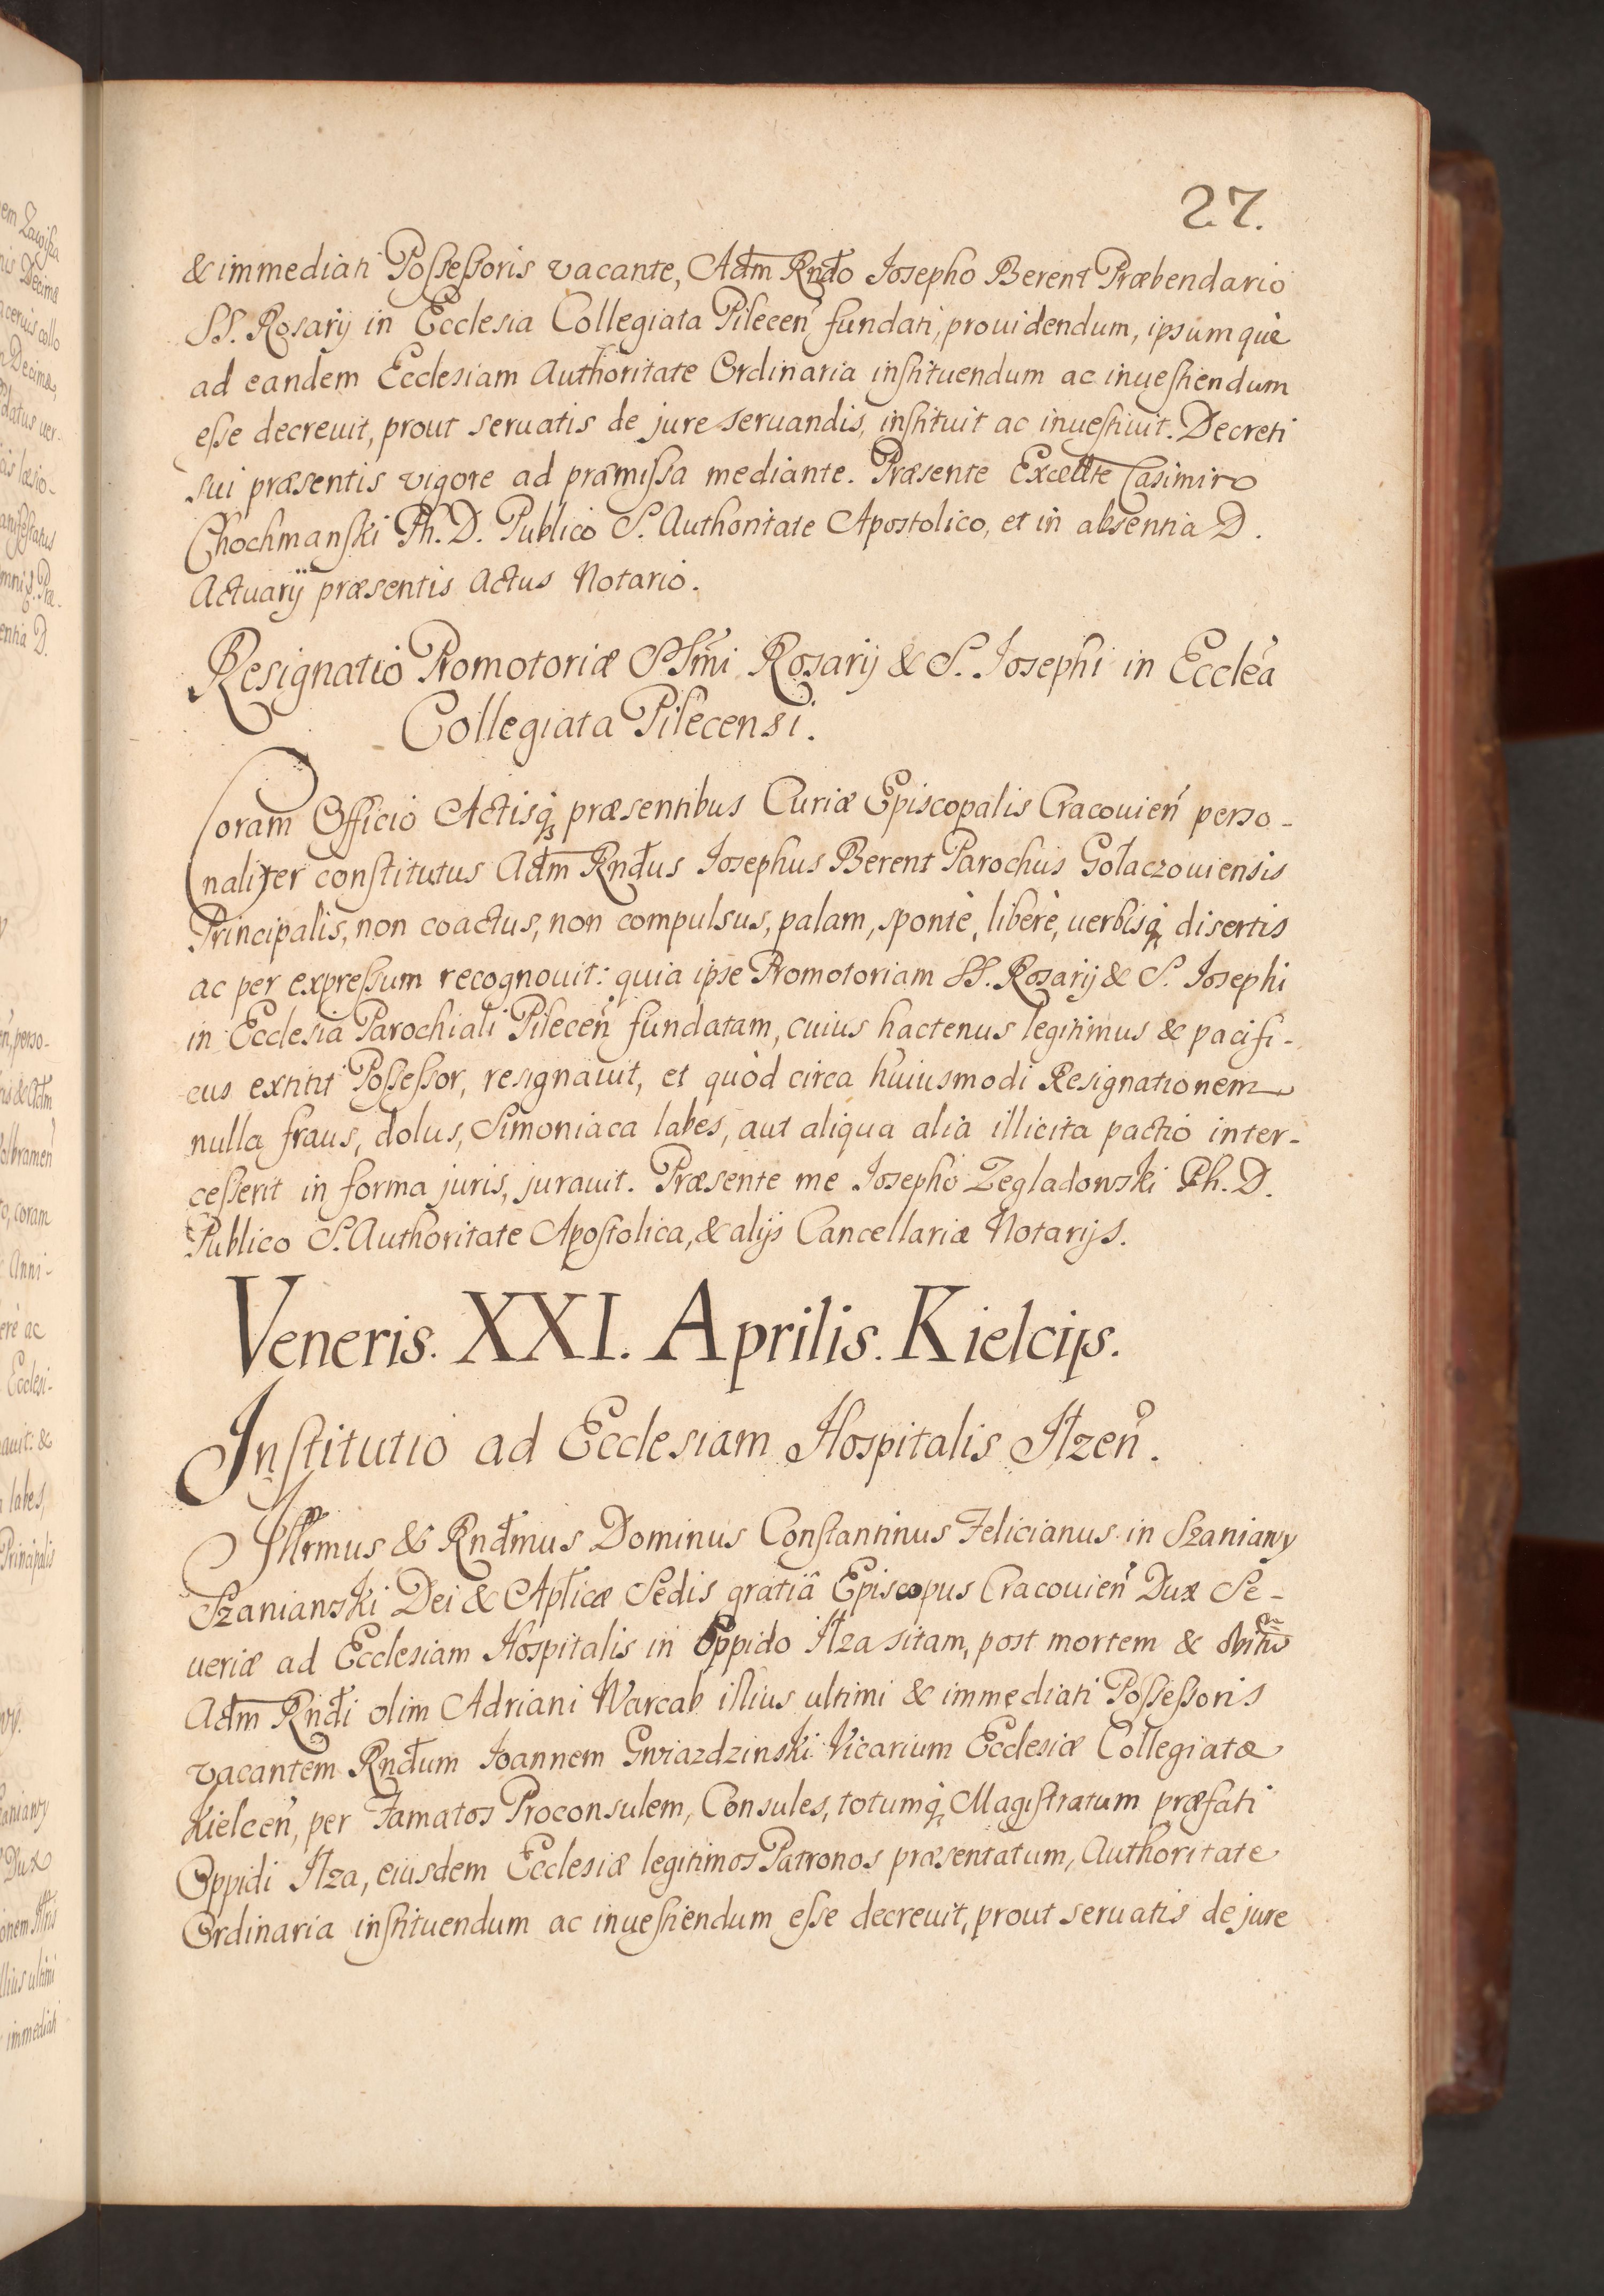 27.
& immediati Possessoris vacante, Adm Rndo Josepho Berent Præbendario
SS. Rosarij in Ecclesia Collegiata Pilecen̄ fundati, prouidendum, ipsumquè
ad eandem Ecclesiam Authoritate Ordinaria instituendum ac inuestiendum
esse decreuit, prout seruatis de jure seruandis, instituit ac inuestiuit. Decreti
sui præsentis vigore ad præmissa mediante. Præsente Excellte Casimiro
Chochmanski Ph. D. Publico S. Authoritate Apostolico, et in absentia D.
Actuarij præsentis Actus Notario.
Resignatio Promotoriæ SSmi Rosarij & S. Josephi in Eccleá
Collegiata Pilecensi.
Coram Officio Actisq; præsentibus Curiæ Episcopalis Cracouien̄ perso-
naliter constitutus Adm Rndus Josephus Berent Parochus Gołaczouiensis
Principalis, non coactus, non compulsus, palam, spontè, liberè, uerbisq; disertis
ac per expressum recognouit: quia ipse Promotoriam SS. Rosarij & S. Josephi
in Ecclesia Parochiali Pilecen̄ fundatam, cuius hactenus legitimus & pacifi-
cus extitit Possessor, resignauit, et quòd circa huiusmodi Resignationem
nulla fraus, dolus, Simoniaca labes, aut aliqua alia illicita pactio inter-
cesserit in forma juris, jurauit. Præsente me Josepho Zegladowski Ph. D.
Publico S. Authoritate Apostolica, & alijs Cancellariæ Notarijs.
Veneris. XXI. Aprilis. Kielcijs.
Institutio ad Ecclesiam Hospitalis Ilzen̄.
Illrmus & Rndmus Dominus Constantinus Felicianus in Szaniawy
Szaniawski Dei & Aplicæ Sedis gratiâ Episcopus Cracouien̄ Dux Se-
ueriæ ad Ecclesiam Hospitalis in Oppido Ilza sitam, post mortem & obitū
Adm Rndi olim Adriani Warcab illius ultimi & immediati Possessoris
vacantem Rndum Joannem Gwiazdzinski Vicarium Ecclesiæ Collegiatæ
Kielcen̄, per Famatos Proconsulem, Consules, totumq; Magistratum præfati
Oppidi Ilza, eiusdem Ecclesiæ legitimos Patronos præsentatum, Authoritate
Ordinaria instituendum ac inuestiendum esse decreuit, prout seruatis de jure